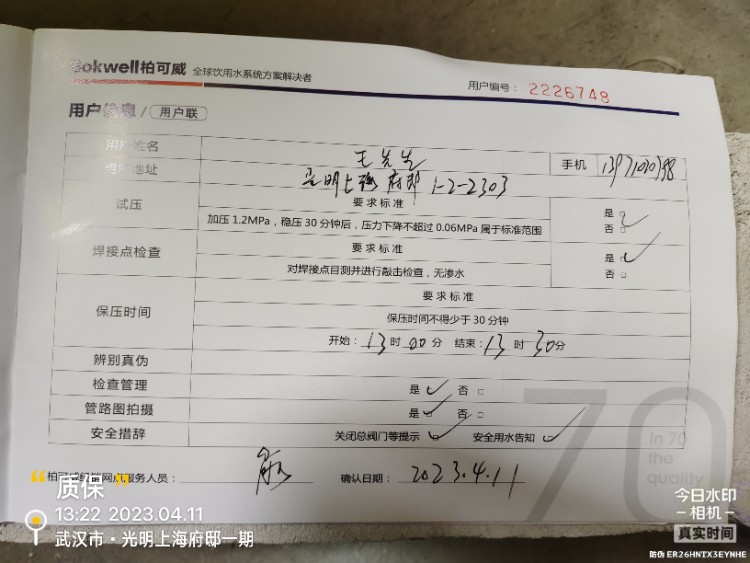 Bokwell柏可威 全球饮用水系统方案解决者 用户编号: 2226748
用户信息 / 用户联
用户姓名 王先生 手机
用户地址 光明上海府邸 1-2-2303
试压 要求标准 是
加压1.2MPa，稳压30分钟后，压力下降不超过0.06MPa属于标准范围 否
焊接点检查 要求标准 是
对焊接点目测并进行敲击检查，无渗水 否
保压时间 要求标准
保压时间不得少于30分钟
开始: 13时00分 结束: 13时30分
辨别真伪
检查管理 是 否
管路图拍摄 是 否
安全措辞 关闭总阀门等提示 安全用水告知
70
In 70
the
quality
服务人员: 确认日期: 2023.4.11
质保
13:22 2023.04.11
武汉市·光明上海府邸一期
今日水印
相机
真实时间
防伪 ER26HNTX3EYNHE